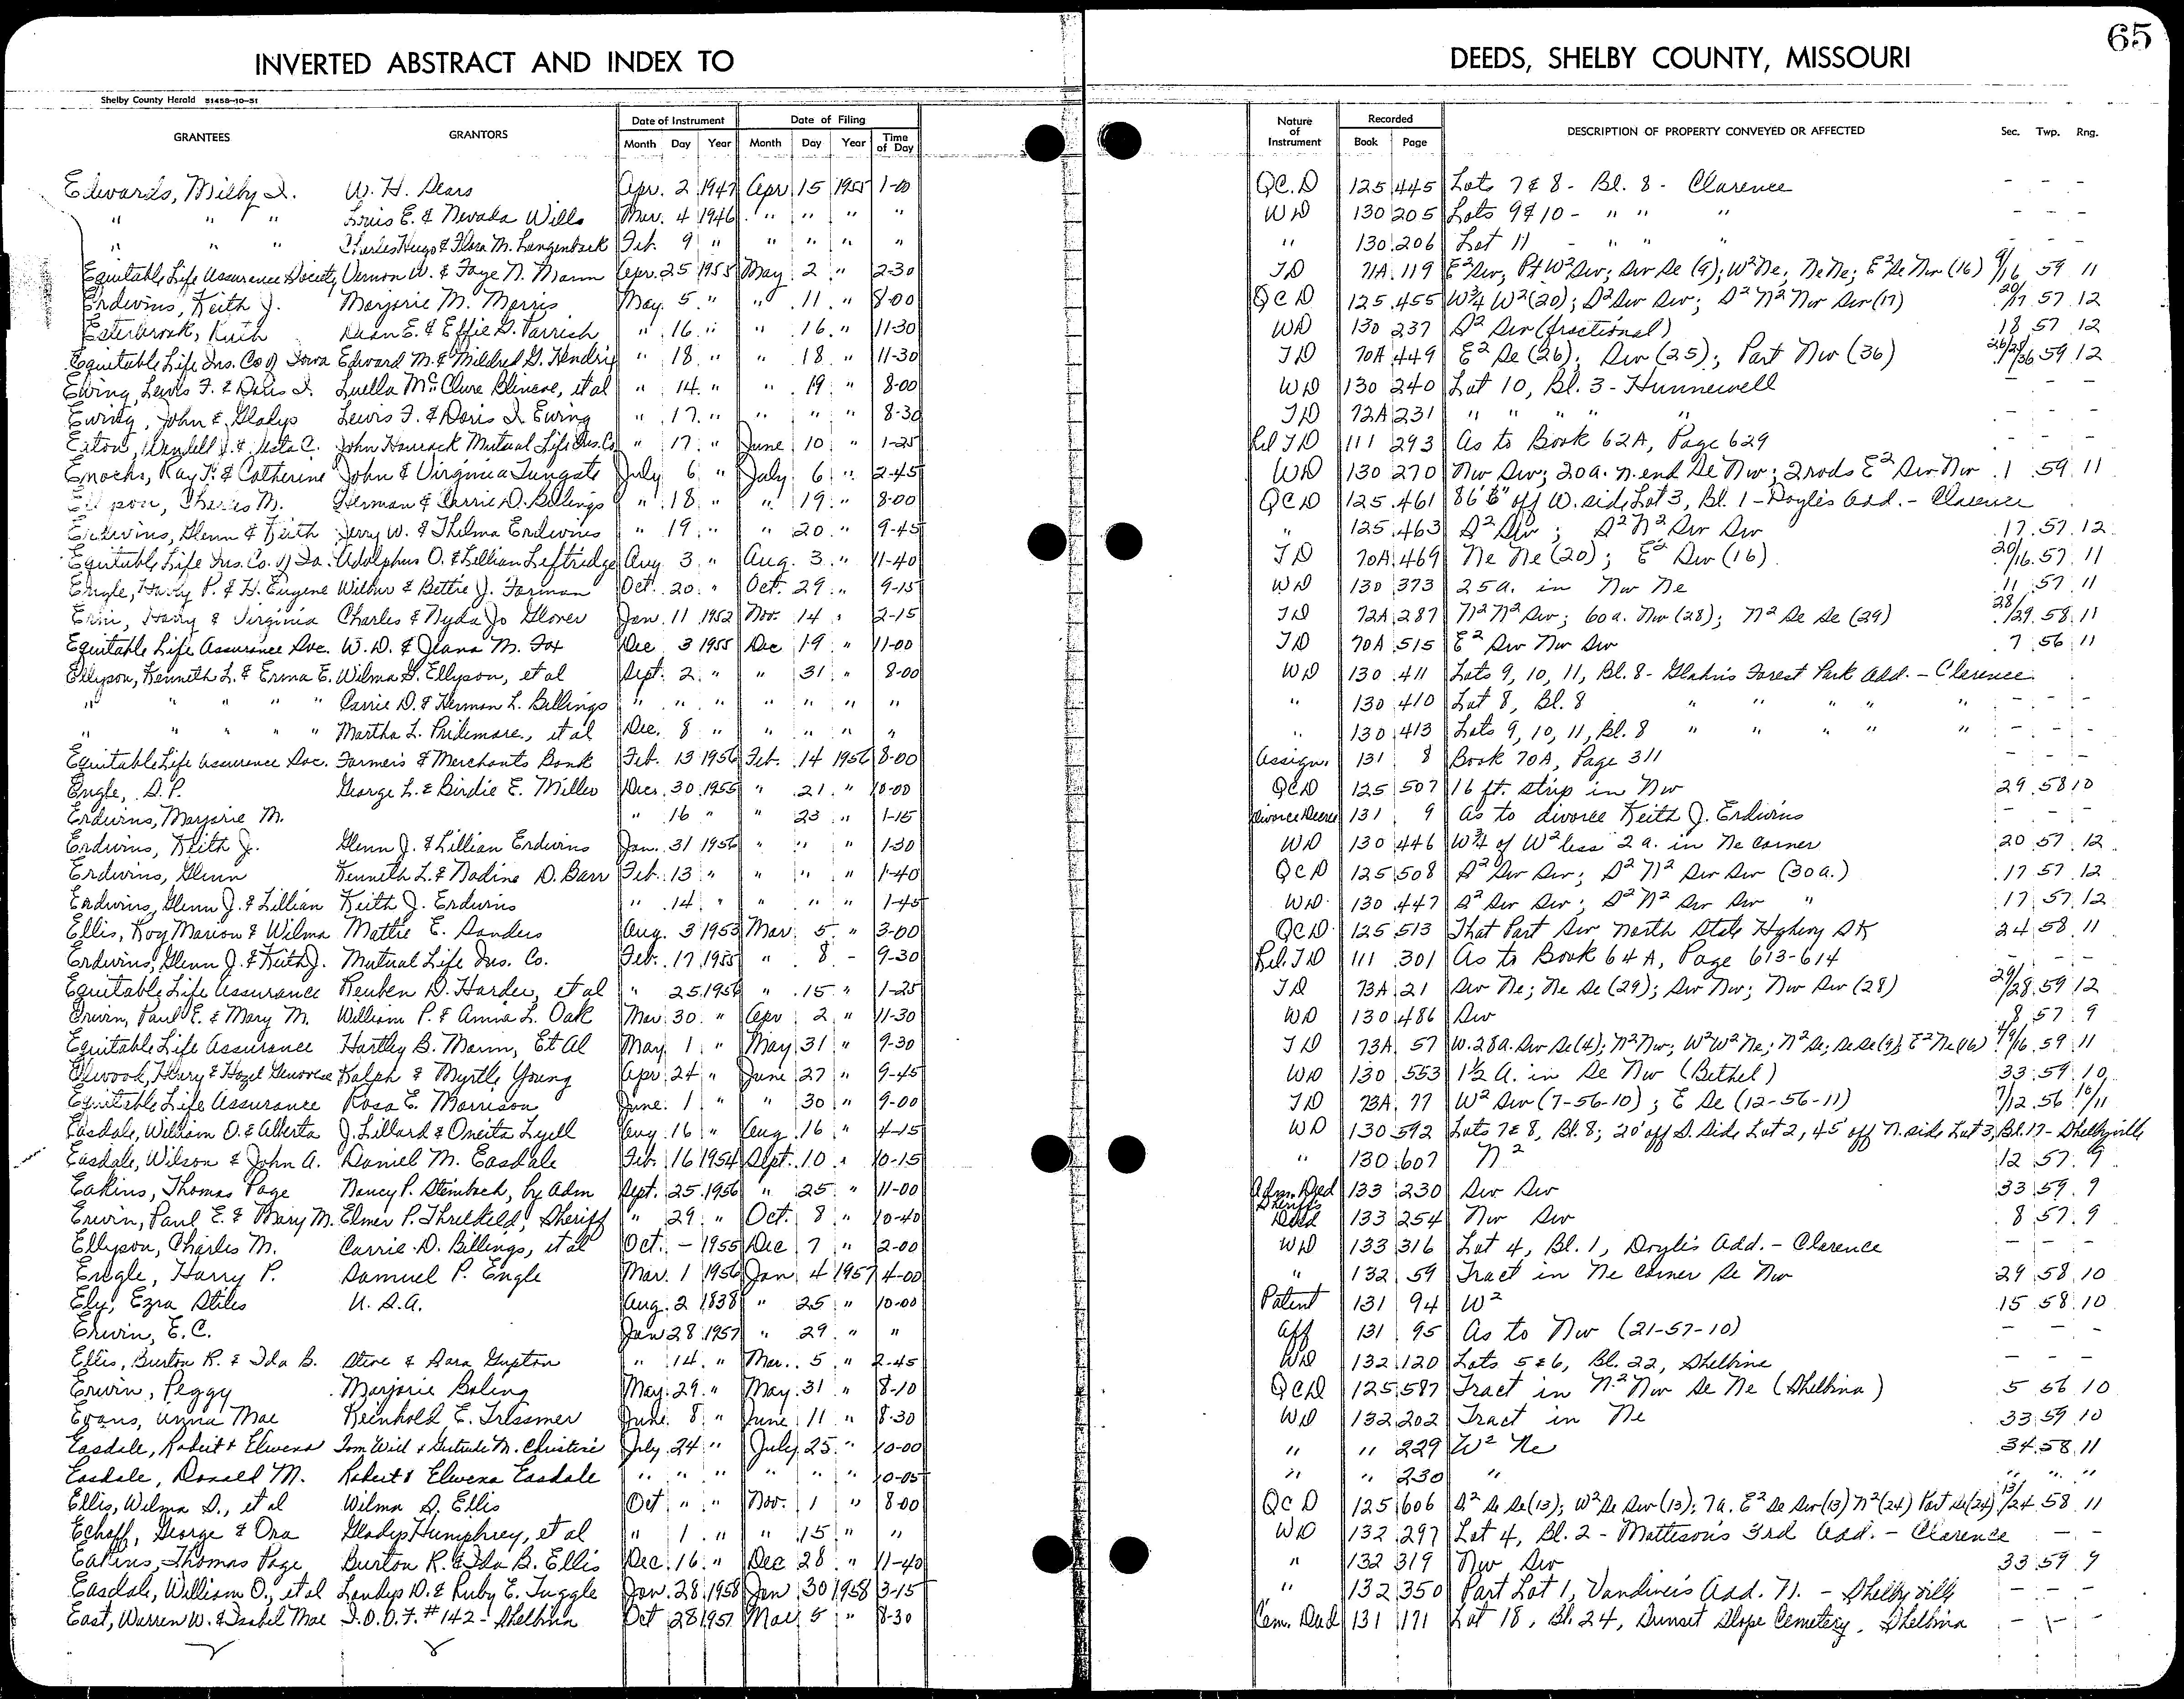 65
INVERTED ABSTRACT AND INDEX TO DEEDS, SHELBY COUNTY, MISSOURI
Shelby County Herald 51458-10-51
GRANTEES GRANTORS Date of Instrument Date of Filing Nature of Instrument Recorded DESCRIPTION OF PROPERTY CONVEYED OR AFFECTED Sec. Twp. Rng.
Month Day Year Month Day Year Time of Day Book Page
Edwards, Milby I. W. H. Sears Apr. 2 1947 Apr 15 1955 1-00 QC.D 125 445 Lots 7 & 8 - Bl. 8 - Clarence - - -
" " " Louis E. & Nevada Wills Mar. 4 1946 " " " " WD 130 205 Lots 9 & 10 - " " " - - -
" " " Charles Hugo & Flora M. Langenback Feb. 9 " " " " " " 130 206 Lot 11 - " " " - - -
Equitable Life Assurance Society Vernon W. & Faye N. Mann Apr. 25 1955 May 2 " 2-30 TD 71A 119 E² Sw; Pt W² Sw; Sw Se (9); W² Ne; Ne Ne; E² Se Nw (16) 9/16 59 11
Erdwins, Keith J. Marjorie M. Morris May 5 " " 11 " 8-00 QCD 125 455 W¾ W² (20); S² Sw Sw; S² N² Nw Sw (17) 20/17 57 12
Esterbrook, Ruth Dean E. & Effie G. Parrish " 16 " " 16 " 11-30 WD 130 237 S² Sw (fractional) 18 57 12
Equitable Life Ins. Co of Iowa Edward M. & Mildred G. Hendrix " 18 " " 18 " 11-30 TD 70A 449 E² Se (26); Sw (25); Part Nw (36) 26/25/36 59 12
Ewing, Lewis F. & Doris I. Luella McClure et al " 14 " " 19 " 8-00 WD 130 240 Lot 10, Bl. 3 - Hunnewell - - -
Ewing, John & Gladys Lewis F. & Doris I. Ewing " 17 " " " " 8-30 TD 72A 231 " " " " " - - -
Eaton, Wendell J. & Vesta C. John Hancock Mutual Life Ins. Co " 17 " June 10 " 1-25 Rel TD 111 293 As to Book 62A, Page 629 - - -
Enochs, Ray T. & Catherine John & Virginia Tungate July 6 " July 6 " 2-45 WD 130 270 Nw Sw; 20a. N. end Se Nw; 2 rods E² Sw Nw 1 59 11
Charles M. Herman & Carrie D. Billings " 18 " " 19 " 8-00 QCD 125 461 86'6" off W. side Lot 3, Bl. 1 - Doyle's Add. - Clarence
Erdwins, Glenn & Keith Jerry W. & Thelma Erdwins " 19 " " 20 " 9-45 " 125 463 S² Sw; S² N² Sw Sw 17 57 12
Equitable Life Ins. Co. of Ia. Adolphus O. & Lillian Leftridge Aug 3 " Aug. 3 " 11-40 TD 70A 469 Ne Ne (20); E² Sw (16) 20/16 57 11
Engle, Harry P. & H. Eugene Wilbur & Bettie J. Forman Oct. 20 " Oct. 29 " 9-15 WD 130 373 25a. in Nw Ne 11 57 11
Harry & Virginia Charles & Nyda Jo Glover Jan. 11 1952 Nov. 14 " 2-15 TD 72A 287 N² N² Sw; 60a. Nw (28); N² Se Se (29) 28/29 58 11
Equitable Life Assurance Soc. W. D. & Jeana M. Fox Dec 3 1955 Dec 19 " 11-00 TD 70A 515 E² Sw Nw Sw 7 56 11
Ellyson, Kenneth L. & Erma E. Wilma G. Ellyson, et al Sept. 2 " " 31 " 8-00 WD 130 411 Lots 9, 10, 11, Bl. 8 - Glahn's Forest Park Add. - Clarence
" " " " " Carrie D. & Herman L. Billings " " " " " " " " 130 410 Lot 8, Bl. 8 " " " " " - - -
" " " " " Martha L. Pridemore, et al Dec. 8 " " " " " " 130 413 Lots 9, 10, 11, Bl. 8 " " " " " - - -
Equitable Life Assurance Soc. Farmers & Merchants Bank Feb. 13 1956 Feb. 14 1956 8-00 Assign. 131 8 Book 70A, Page 311 - - -
Engle, S.P. George L. & Birdie E. Miller Dec. 30 1955 " 21 " 10-00 QCD 125 507 16 ft. strip in Nw 29 58 10
Erdwins, Marjorie M. " 16 " " 23 " 1-15 Divorce Decree 131 9 As to divorce Keith J. Erdwins
Erdwins, Keith J. Glenn J. & Lillian Erdwins Jan. 31 1956 " " " 1-30 WD 130 446 W¾ of W² less 2 a. in Ne corner 20 57 12
Erdwins, Glenn Kenneth L. & Nadine D. Barr Feb. 13 " " " " 1-40 QCD 125 508 S² Sw Sw; S² N² Sw Sw (30a.) 17 57 12
Erdwins, Glenn J. & Lillian Keith J. Erdwins " 14 " " " " 1-45 WD 130 447 S² Sw Sw; S² N² Sw Sw " 17 57 12
Ellis, Roy Marion & Wilma Mattie E. Sanders Aug. 3 1953 Mar. 5 " 3-00 QCD 125 513 That Part Sw North State Highway SK 24 58 11
Erdwins, Glenn J. & Keith J. Mutual Life Ins. Co. Feb. 17 1955 " 8 - 9-30 Rel. TD 111 301 As to Book 64A, Page 613-614 - - -
Equitable Life Assurance Reuben D. Harder, et al " 25 1956 " 15 " 1-25 TD 73A 21 Sw Ne; Ne Se (29); Sw Nw; Nw Sw (28) 29/28 59 12
Erwin, Paul E. & Mary M. William P. & Anna L. Oak Mar 30 " Apr 2 " 11-30 WD 130 486 Sw 8 57 9
Equitable Life Assurance Hartley B. Mann, Et Al May 1 " May 31 " 9-30 TD 73A 57 W. 28a. Sw Se (4); N² Nw; W² W² Ne; N² Se; Se Se (9); E² Ne (16) 4/9/16 59 11
Elwood, Henry & Hazel Genovese Ralph & Myrtle Young Apr 24 " June 27 " 9-45 WD 130 553 1½ a. in Se Nw (Bethel) 33 59 10
Equitable Life Assurance Rosa E. Morrison June 1 " " 30 " 9-00 TD 73A 77 W² Sw (7-56-10); E Se (12-56-11) 7/12 56 10/11
Easdale, William O. & Alberta J. Lillard & Oneita Lyell Aug 16 " Aug 16 " 4-15 WD 130 592 Lots 7 & 8, Bl. 8; 20' off S. side Lot 2, 45' off N. side Lot 3, Bl. 17 - Shelbyville
Easdale, Wilson & John A. Daniel M. Easdale Feb. 16 1954 Sept. 10 " 10-15 " 130 607 N² 12 57 9
Eakins, Thomas Page Nancy P. Steinbach, by Adm Sept. 25 1956 " 25 " 11-00 Adm. Deed 133 230 Sw Sw 33 59 9
Erwin, Paul E. & Mary M. Elmer P. Threlkeld, Sheriff " 29 " Oct. 8 " 10-40 Sheriff's Deed 133 254 Nw Sw 8 57 9
Ellyson, Charles M. Carrie D. Billings, et al Oct. - 1955 Dec 7 " 2-00 WD 133 316 Lot 4, Bl. 1, Doyle's Add. - Clarence - - -
Engle, Harry P. Samuel P. Engle Mar. 1 1956 Jan 4 1957 4-00 " 132 59 Tract in Ne corner Se Nw 29 58 10
Ely, Ezra Stiles U. S. A. Aug. 2 1838 " 25 " 10-00 Patent 131 94 W² 15 58 10
Erwin, E. C. Jan 28 1957 " 29 " " Aff 131 95 As to Nw (21-57-10) - - -
Ellis, Burton R. & Ida B. Steve & Sara Gupton " 14 " Mar. 5 " 2-45 WD 132 120 Lots 5 & 6, Bl. 22, Shelbina - - -
Erwin, Peggy Marjorie Boling May 29 " May 31 " 8-10 QCD 125 587 Tract in N² Nw Se Ne (Shelbina) 5 56 10
Evans, Anna Mae Reinhold E. Trissmer June 8 " June 11 " 8-30 WD 132 202 Tract in Ne 33 59 10
Easdale, Robert & Elwena Tom Will & Gertrude M. Christine July 24 " July 25 " 10-00 " " 229 W² Ne 34 58 11
Easdale, Donald M. Robert & Elwena Easdale " " " " " " 10-05 " " 230 " " " "
Ellis, Wilma S., et al Wilma S. Ellis Oct " " Nov. 1 " 8-00 QCD 125 606 S² Se Se (13); W² Se Sw (13); 7a. E² Se Sw (13) N² (24) Part Se (24) 13/24 58 11
Echoff, George & Ora Gladys Humphrey, et al " 1 " " 15 " " WD 132 297 Lot 4, Bl. 2 - Mattison's 3rd Add. - Clarence - -
Eakins, Thomas Page Burton R. & Ida B. Ellis Dec. 16 " Dec 28 " 11-40 " 132 319 Nw Sw 33 59 9
Easdale, William O., et al Landys D. & Ruby E. Tuggle Jan. 28 1958 Jan 30 1958 3-15 " 132 350 Part Lot 1, Vandiver's Add. N. - Shelbyville - - -
East, Warren W. & Isabel Mae I.O.O.F. #142 - Shelbina Oct 28 1957 Mar 5 " 8-30 Cem. Deed 131 171 Lot 18, Bl. 24, Sunset Slope Cemetery, Shelbina - - -